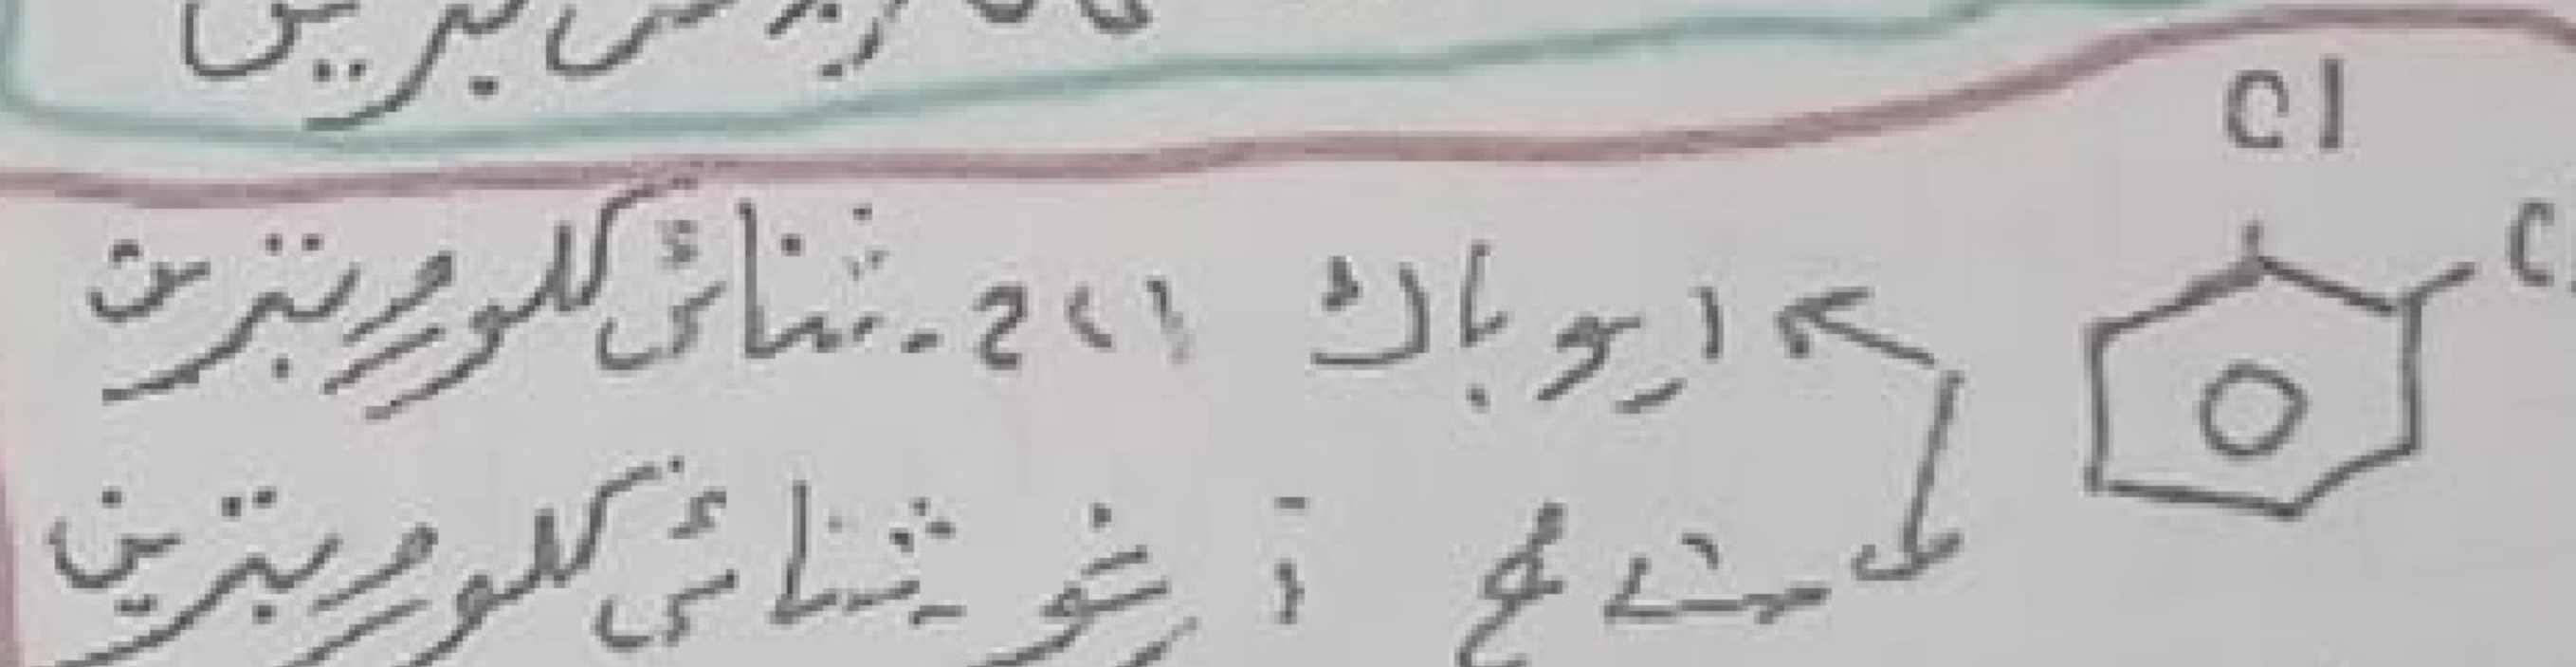 Cl
ايوباك 1،2- ثنائي كلوروبنزين
شائع أورثو- ثنائي كلوروبنزين